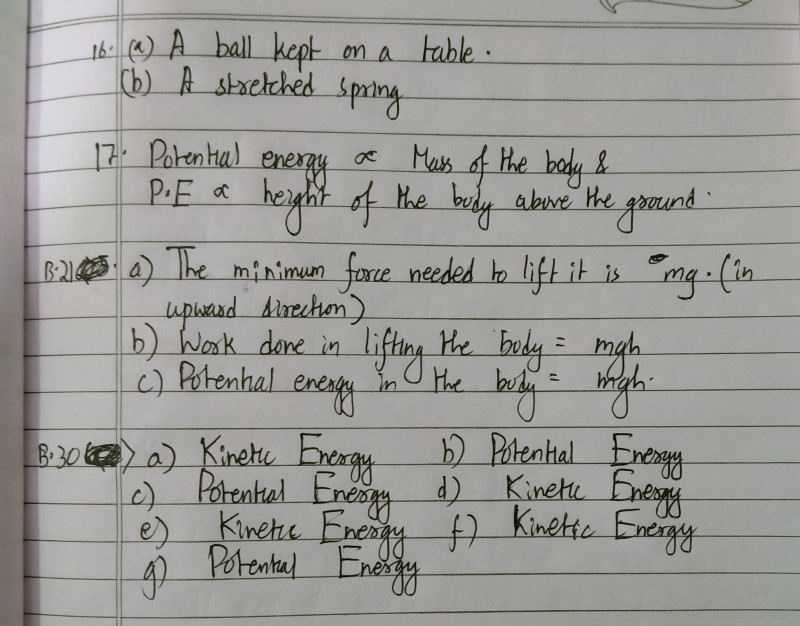 16. (a) A ball kept on a table.
(b) A stretched spring
17. Potential energy ∝ Mass of the body &
P.E ∝ height of the body above the ground.
B.21 a) The minimum force needed to lift it is mg. (in
upward direction)
b) Work done in lifting the body = mgh
c) Potential energy in the body = mgh.
B.30 > a) Kinetic Energy b) Potential Energy
c) Potential Energy d) Kinetic Energy
e) Kinetic Energy f) Kinetic Energy
g) Potential Energy